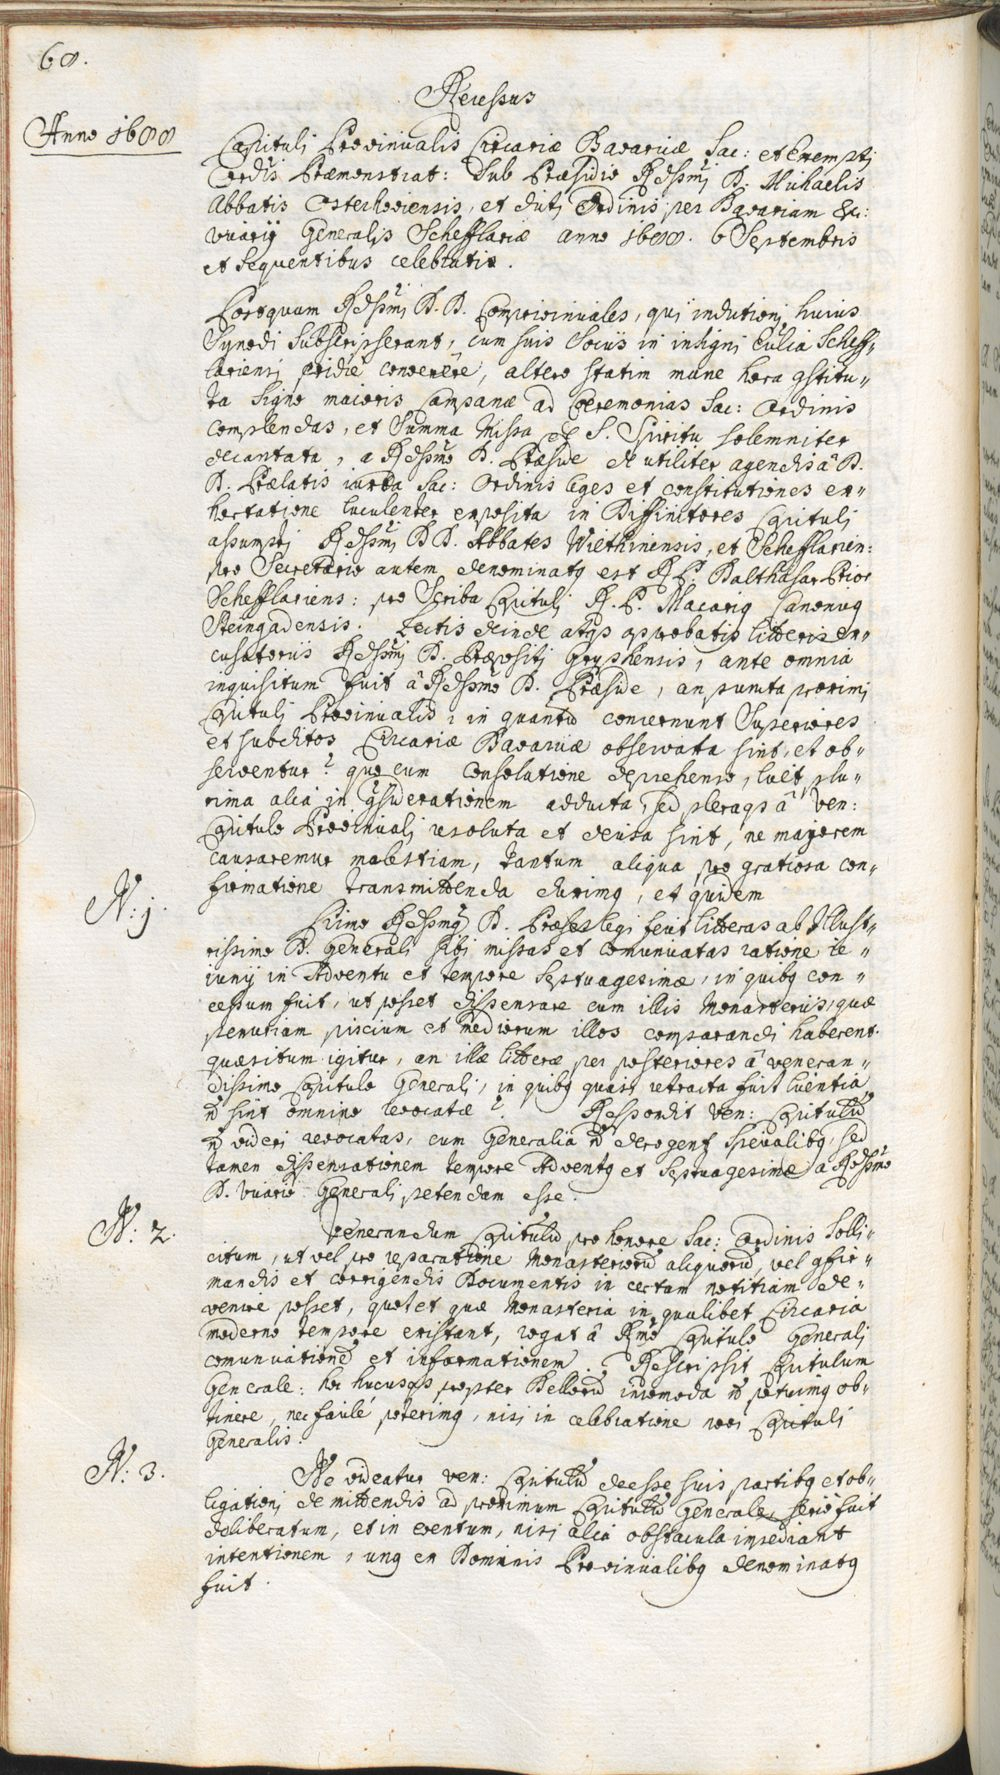 68.
Recessus
Anno 1688
Capituli Provincialis Circariæ Bavaricæ Sac: et Exempti
Ordis Præmonstrat: Sub Præsidio Rdssmi D. Michaelis
Abbatis Osterhoviensis, et dicti Ordinis per Bavariam &c:
vicarij Generalis Schefflariæ anno 1688. 6 Septembris
et sequentibus celebrati.
Postquam Rdssmi D. D. Comprovinciales, qui indictioni huius
Synodi subscripserant, cum suis Socijs in insigni Eccl̄ia Scheff„
lariensi pridie convenêre, altero statim mane hora 9stitu„
ta signo maioris campanæ ad Cæremonias Sac: Ordinis
complendas, et Summa Missa de S. Spiritu solemniter
decantata, a Rdssmo D. Præside de utiliter agendis â D.
D. Prælatis iuxta Sac: Ordinis leges et constitutiones ex„
hortatione luculenter exposita in Diffinitores Capituli
assumpti Rdssmi D D. Abbates Wilthinensis, et Schefflarien:
pro Secretario autem denominatq est R. P. Balthasar Prior
Schefflariens: pro Scriba Capituli R. P. Macariq Canonicq
Steingadensis. Lectis deinde atqs approbatis litteris ex„
cusatorijs Rdssmi D. Præpositi Gryphensis, ante omnia
inquisitum fuit â Rdssmo D. Præside, an puncta proximi
Capituli Provincialis, in quantū concernunt Superiores
et subditos Circariæ Bavaricæ observata sint, et ob„
serventur? quo cum Consolatione deprehenso, licèt plu„
rima alia in 9siderationem adducta, sed pleraqs â ven:
Capitulo Provinciali resoluta et decisa sint, ne majorem
causaremur molestiam, tantum aliqua pro gratiosa con„
firmatione transmittenda duximq, et quidem
N: 1.
Primo Rdssmq D. Præses legi fecit litteras ab Illust„
rissimo D. Generali sibi missas et comunicatas ratione ie„
iunij in Adventu et tempore Septuagesimæ, in quibq con„
cessum fuit, ut posset dispensare cum illis Monasterijs, quæ
penuriam piscium et mediorum illos comparandi haberent.
quæsitum igitur, an illæ litteræ per posteriores â veneran„
dissimo Capitulo Generali, in quibq quasi retracta fuit licentia,
ñ sint omnino revocatæ? Respondit Ven: Capitulū
ñ videri revocatas, cum Generalia ñ derogent specialibq, sed
tamen dispensationem tempore Adventq et Septuagesimæ a Rdssmo
D. Vicario Generali petendam esse.
N: 2.
Venerandum Capitulū pro honore Sac: Ordinis solli„
citum, ut vel pro reparatione Monasteriorū aliquorū, vel 9fir„
mandis et corrigendis Documentis in certam notitiam de„
venire posset, quot et quæ Monasteria in qualibet Circaria
moderno tempore existant, rogat â Rmo Capitulo Generali
comunicationē et informationem. Rescripsit Capitulum
Generale: hoc hucusqs propter Bellorū incomoda ñ potuimq ob„
tinere, nec facilè poterimq, nisi in celebratione novi Capituli
Generalis.
N: 3.
Ne videatur ven: Capitulū deesse suis partibq et ob„
ligationi de mittendis ad proximum Capitulū Generale, seriò fuit
deliberatum, et in eventum, nisi alia obstacula impediant
intentionem, unq ex Dominis Provincialibq denominatq
fuit.